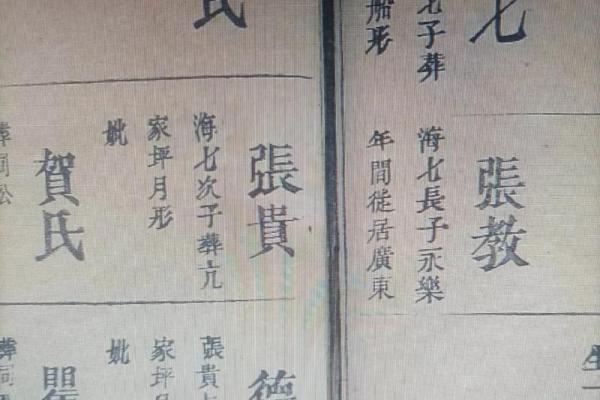 七
七子葬
船形
張教
海七長子永樂
年間徙居廣東
氏
張貴
海七次子葬亢
家坪月形
妣
賀氏
葬同
德
張貴
家坪
妣
葬同